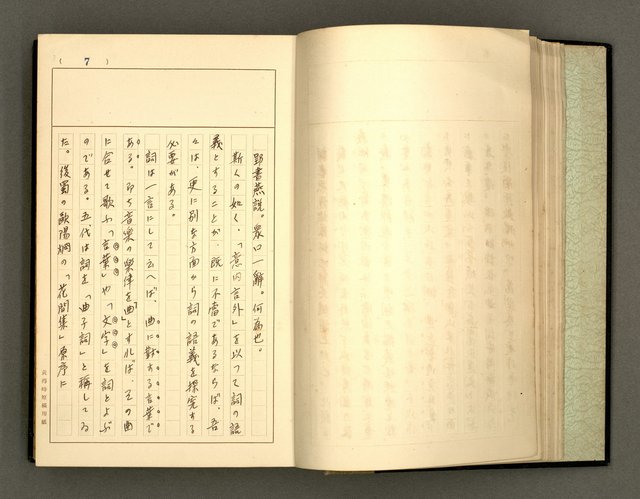 ( 7 )
郢書燕説。衆口一解。何為也。
斯くの如く、「意内言外」を以つて詞の語
義とすることが、既に不當であるならば、吾
々は、更に別な方面から詞の語義を探究する
必要がある。
詞は一言にして云へば、曲に對する言葉で
ある。即ち音樂の樂律を「曲」とすれば、その曲
に合せて歌ふ「言葉」や「文字」を詞とよぶ
のである。五代は詞を「曲子詞」と稱してゐ
た。後蜀の歐陽烱の「花間集」原序に
黃得時原稿用紙